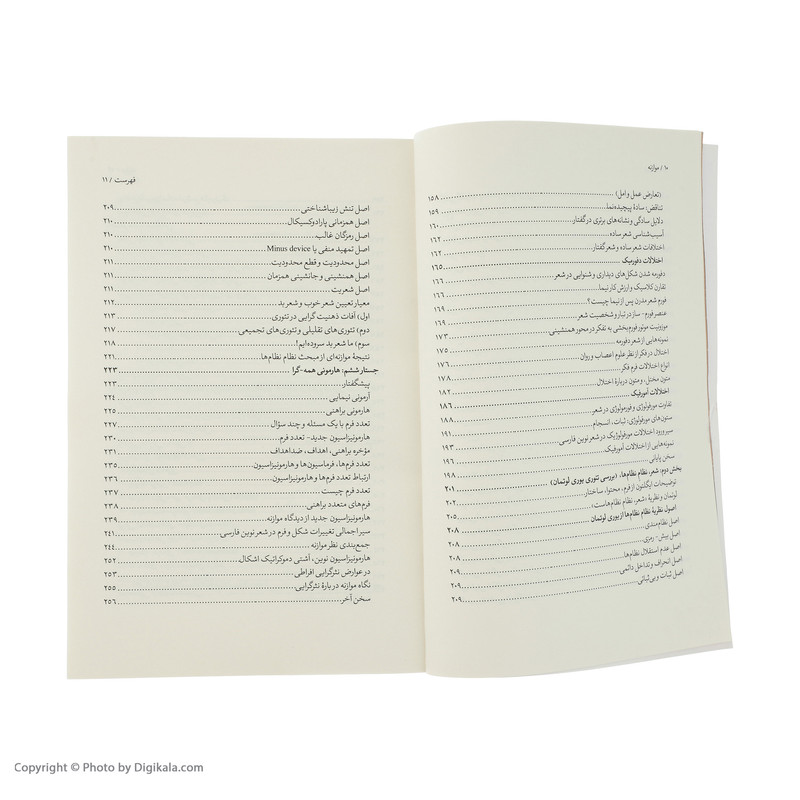 ۱۰ / موازنه
(تعارض عمل و امل) ۱۵۸
تناقض: سادۀ پیچیده‌نما ۱۵۹
دلایل سادگی و نشانه‌های برتری در گفتار ۱۶۰
آسیب‌شناسی شعر ساده ۱۶۲
اختلافات شعر ساده و شعر گفتار ۱۶۲
اختلالات دفورمیک ۱۶۵
دفورمه شدن شکل‌های دیداری و شنوایی در شعر ۱۶۶
تقارن کلاسیک و ارزش کار نیما ۱۶۶
فورم شعر مدرن پس از نیما چیست؟ ۱۶۹
عنصر فورم - ساز در تبار و شخصیت شعر ۱۶۹
موزونیت موتور فورم‌بخشی به تفکر در محور همنشینی ۱۷۳
نمونه‌هایی از شعر دفورمه
اختلال در فکر از نظر علوم اعصاب و روان ۱۷۶
انواع اختلالات فرم فکر ۱۷۸
متون مختل، و متون دربارۀ اختلال ۱۸۲
اختلالات آمورفیک ۱۸۶
تفاوت مورفولوژی و فورمولوژی در شعر ۱۸۸
ستون‌های مورفولوژی: ثبات، انسجام ۱۹۱
سیر ورود اختلالات مورفولوژیک در شعر نوین فارسی ۱۹۳
نمونه‌هایی از اختلالات آمورفیک ۱۹۶
سخن پایانی ۱۹۸
بخش دوم: شعر، نظام نظام‌ها، (بررسی تئوری یوری لوتمان) ۲۰۱
توضیحات ایگلتون از فرم، محتوا، ساختار ۲۰۲
لوتمان و نظریۀ «شعر، نظام نظام‌هاست» ۲۰۵
اصول نظریۀ نظام نظام‌ها از یوری لوتمان ۲۰۸
اصل نظام‌مندی ۲۰۸
اصل بیش - رمزی ۲۰۸
اصل عدم استقلال نظام‌ها ۲۰۹
اصل انحراف و تداخل دائمی ۲۰۹
اصل ثبات و بی‌ثباتی ۲۰۹
فهرست / ۱۱
اصل تنش زیباشناختی ۲۰۹
اصل همزمانی پارادوکسیکال ۲۱۰
اصل رمزگان غالب ۲۱۰
اصل تمهید منفی یا Minus device ۲۱۰
اصل محدودیت و قطع محدودیت ۲۱۱
اصل همنشینی و جانشینی همزمان ۲۱۱
اصل شعریت ۲۱۱
معیار تعیین شعر خوب و شعر بد ۲۱۲
اول) آفات ذهنیت گرایی در تئوری ۲۱۳
دوم) تئوری‌های تقلیلی و تئوری‌های تجمیعی ۲۱۷
سوم) ما شعر بد سروده‌ایم! ۲۱۸
نتیجۀ موازنه‌ای از مبحث نظام نظام‌ها ۲۲۱
جستار ششم: هارمونی همه-گرا ۲۲۳
پیشگفتار ۲۲۳
آرمونی نیمایی ۲۲۴
هارمونی براهنی ۲۲۵
تعدد فرم با یک مسئله و چند سؤال ۲۲۷
هارمونیزاسیون جدید- تعدد فرم ۲۳۰
مؤخره براهنی، اهداف، ضداهداف ۲۳۱
تعدد فرم‌ها، فرماسیون‌ها و هارمونیزاسیون ۲۳۵
ارتباط تعدد فرم‌ها و هارمونیزاسیون ۲۳۶
تعدد فرم چیست ۲۳۷
فرم‌های متعدد براهنی ۲۳۸
هارمونیزاسیون جدید از دیدگاه موازنه ۲۳۹
سیر اجمالی تغییرات شکل و فرم در شعر نوین فارسی ۲۴۱
جمع‌بندی نظر موازنه ۲۴۴
هارمونیزاسیون نوین، آشتی دموکراتیک اشکال ۲۵۲
در عوارض نثرگرایی افراطی ۲۵۳
نگاه موازنه دربارۀ نثرگرایی ۲۵۵
سخن آخر ۲۵۶
Copyright © Photo by Digikala.com